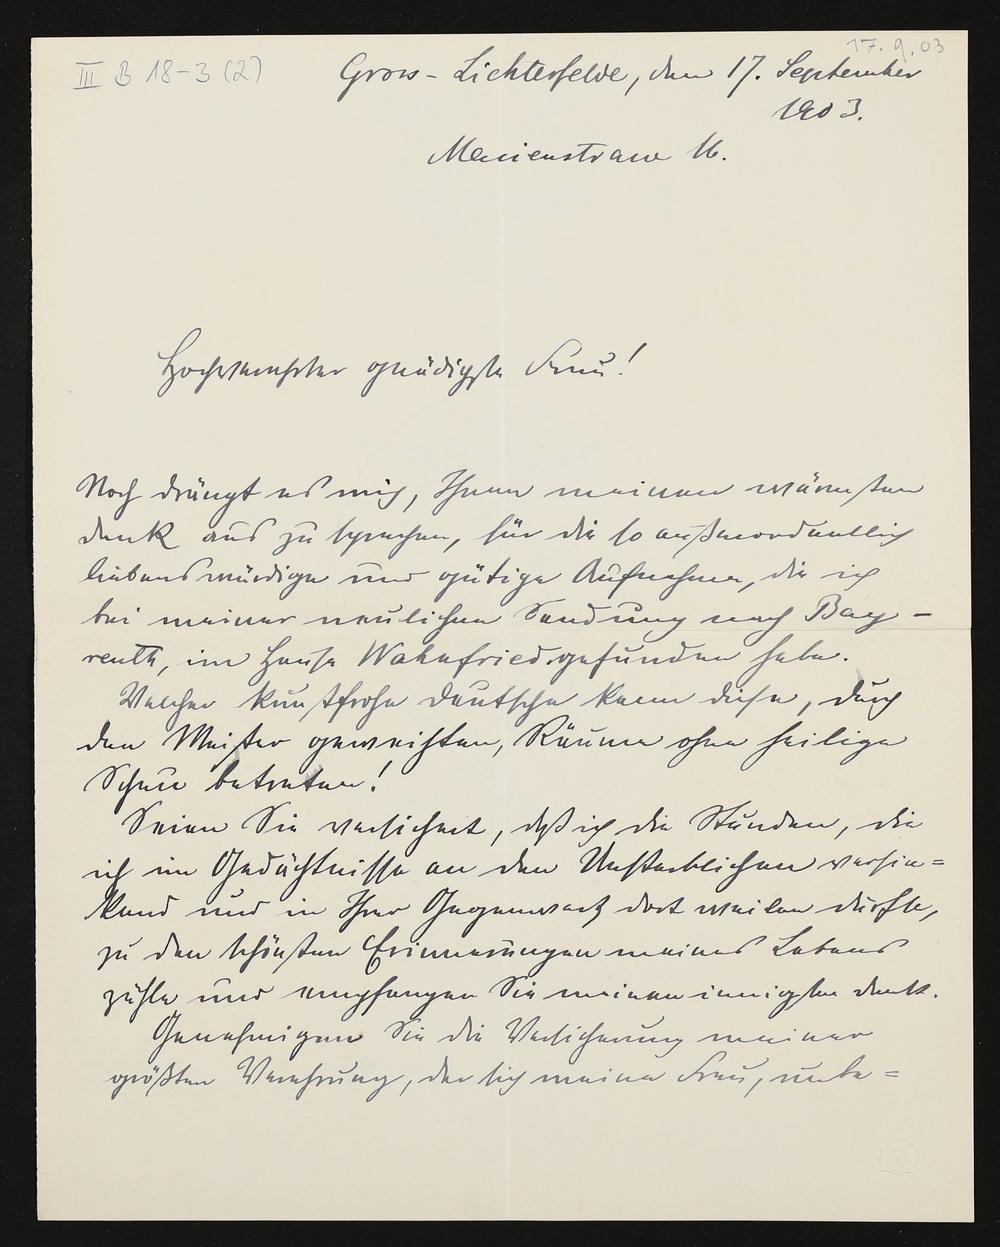 17.9.03
III B 18-3 (2)
Gross-Lichterfelde, den 17. September
1903.
Marienstrasse 16.
Hochverehrter gnädigste Frau!
Noch drängt es mich, Ihnen meinen wärmsten
Dank aus zu sprechen, für die so außerordentlich
liebenswürdige und gütige Aufnahme, die ich
bei meiner neulichen Sendung nach Bay-
reuth, im Hause Wahnfried gefunden habe.
Welcher kunstfrohe Deutsche kann diese, durch
den Meister geweihten, Räume ohne heilige
Scheu betreten!
Seien Sie versichert, daß ich die Stunden, die
ich im Gedächtnisse an den Unsterblichen versin=
kend und in Ihrer Gegenwart dort weilen durfte,
zu den schönsten Erinnerungen meines Lebens
zähle und empfangen Sie meinen innigsten Dank.
Genehmigen Sie die Versicherung meiner
größten Verehrung, der sich meine Frau, unbe=